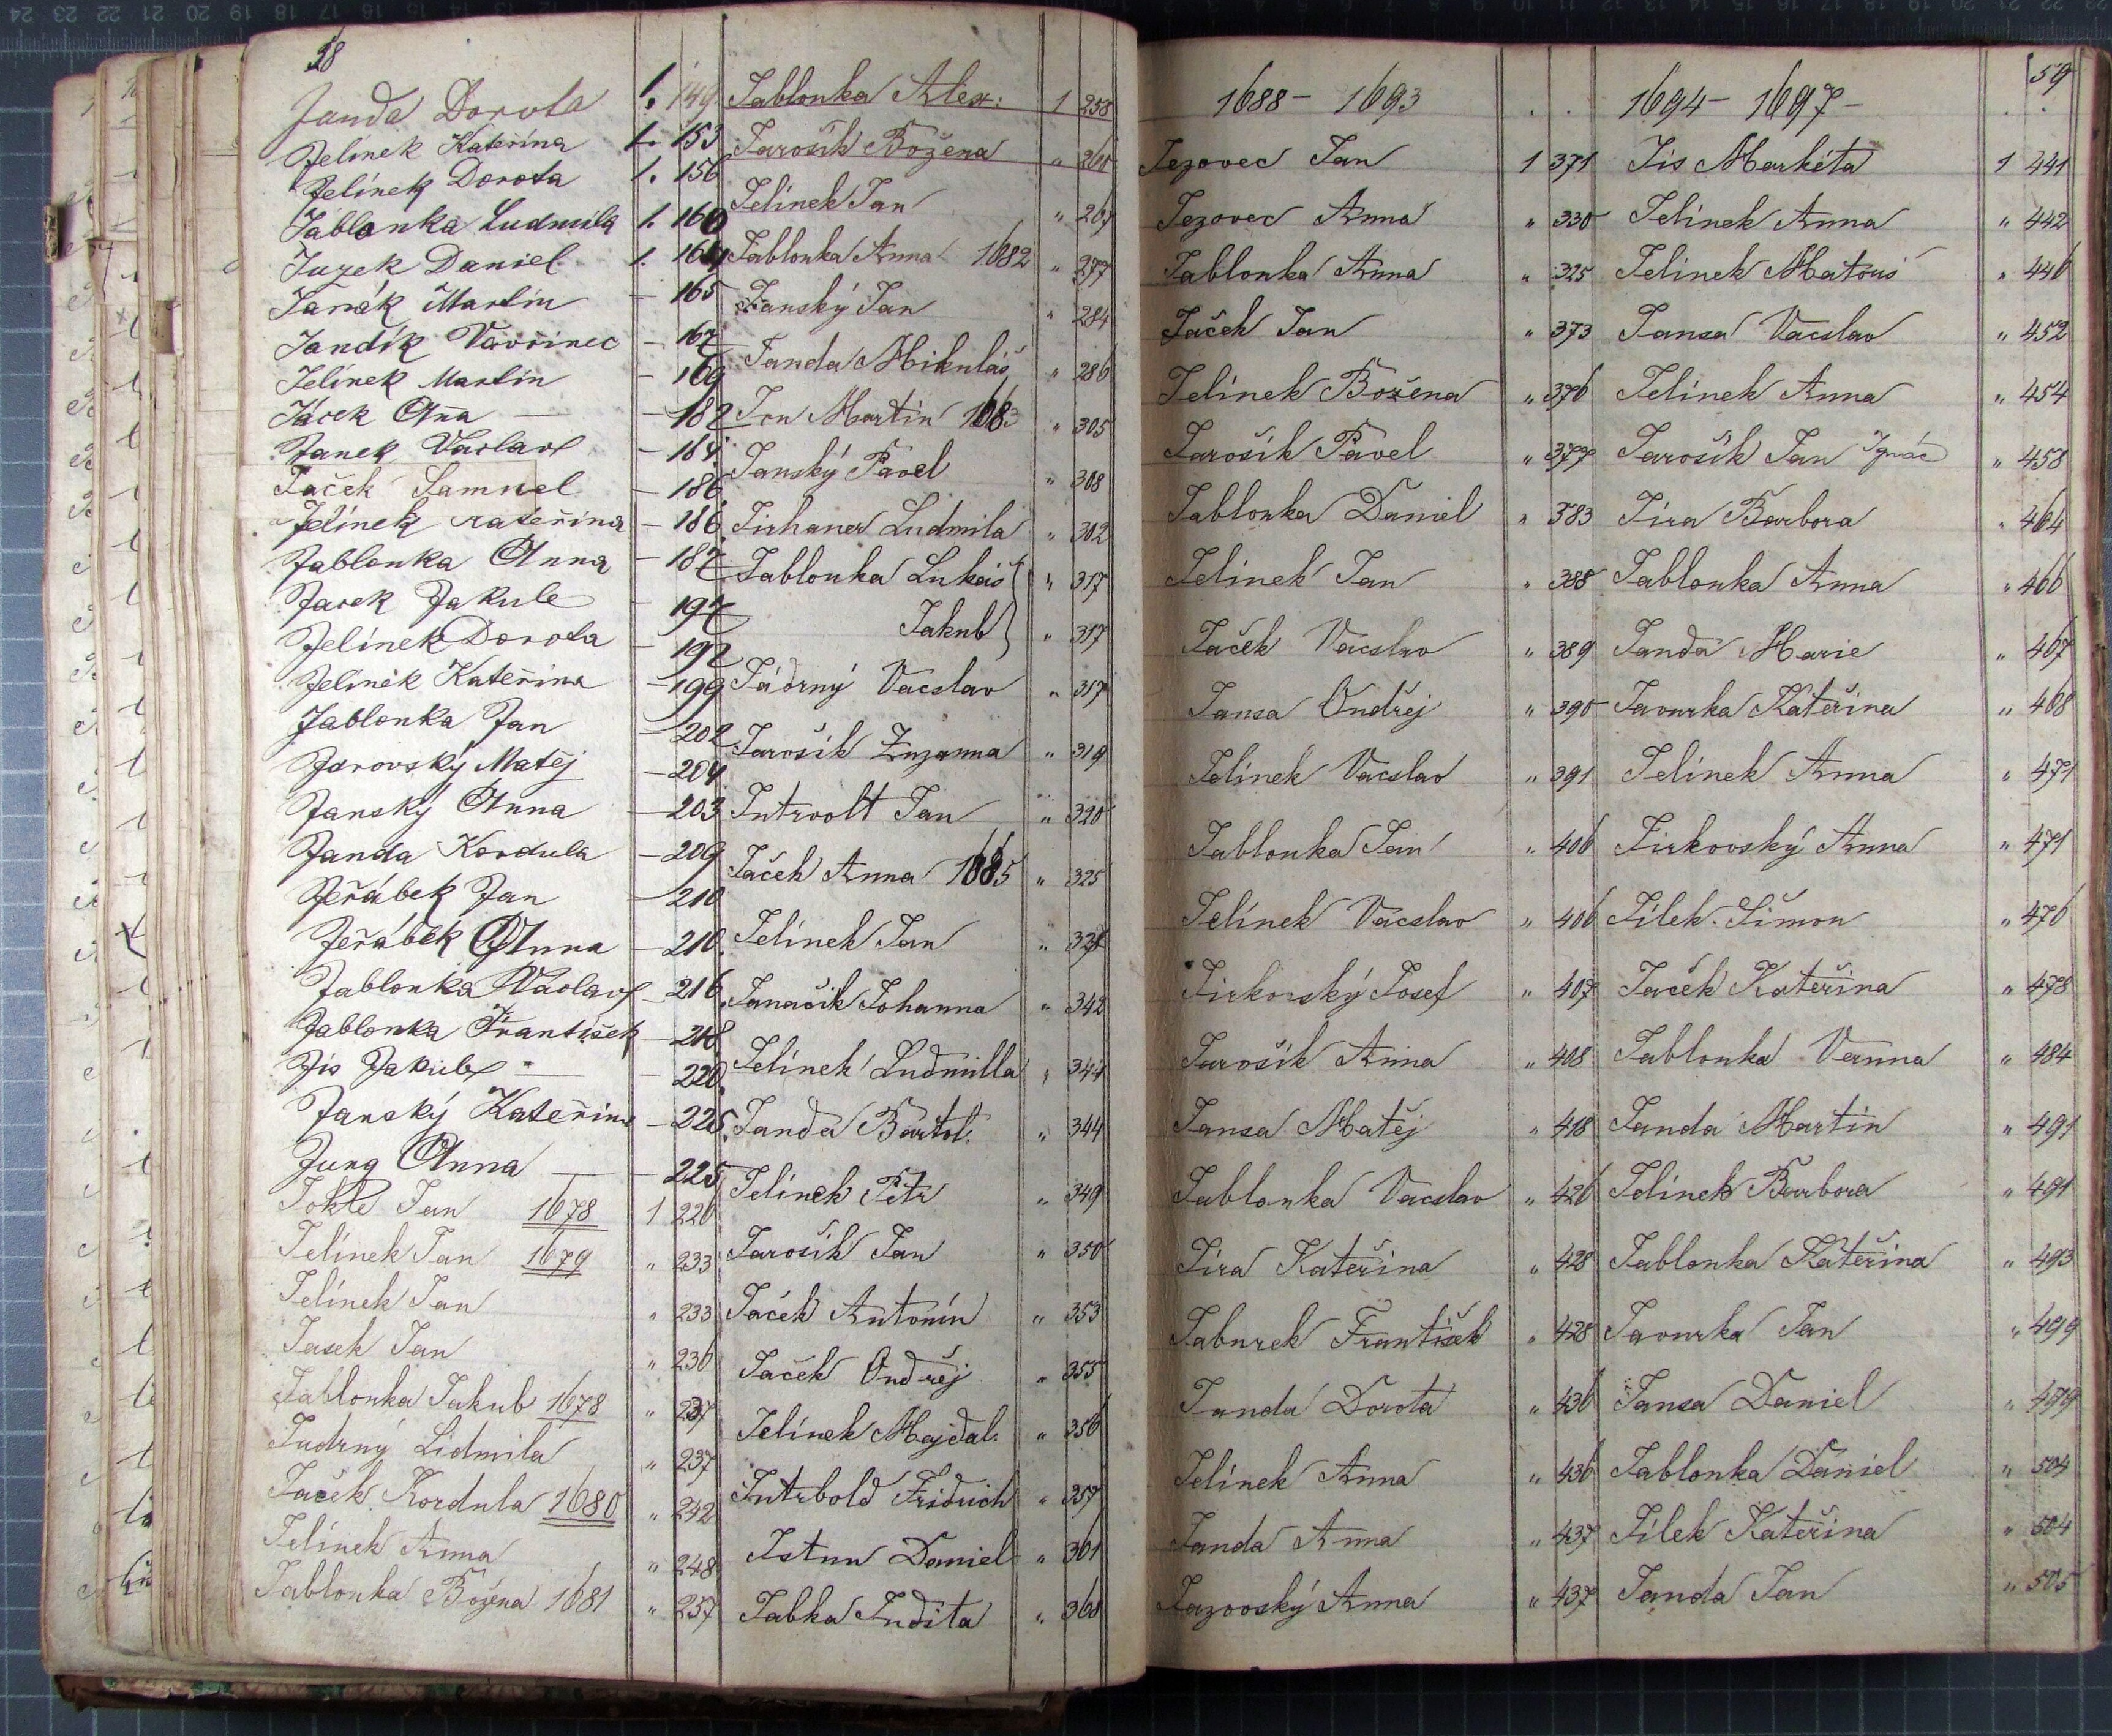 38
Janda Dorota 1. 149
Jelínek Kateřina 1. 153
Jelínek Dorota 1. 156
Jablonka Ludmila 1. 160
Juzek Daniel 1. 164
Martin — 165
Jandík Vavřinec — 167
Jelínek Martin — 169
Jácek Aña — 182
Janek Vaclav — 184
Jaček Samuel — 186
Jelínek Kateřina — 186
Jablonka Anna — 187
Jakub — 197
Jelínek Dorota — 192
Jelínek Kateřina — 199
Jablonka Jan — 202
Matěj — 204
Janský Anna — 203
Janda Kordula — 209
Jeřábek Jan — 210
Jeřábek Anna — 210
Jablonka Václav — 216
Jablonka František — 218
Jis Jakub — 220
Janský Kateřina — 225
Jung Anna — 225
Jan 1678 1 226
Jelínek Jan 1679 " 233
Jelínek Jan " 233
Jasek Jan " 236
Jablonka Jakub 1678 " 237
Judrný Lidmila " 237
Jaček Kordula 1680 " 242
Jelínek Anna " 248
Jablonka Božena 1681 " 257
Jablonka Alex: 1 258
Jarošík Božena " 260
Jelínek Jan " 267
Jablonka Anna 1682 " 277
Janský Jan " 284
Janda Mikuláš " 286
Jon Martin 1683 " 305
Janský Pavel " 308
Jirhaner Ludmila " 302
Jablonka Lukáš " 317
Jakub " 317
Jádrný Vacslav " 317
Jarošík Zuzanna " 319
Jntrvolt Jan " 320
Jaček Anna 1685 " 325
Jelínek Jan "
Janačik Johanna " 342
Jelínek Ludmilla " 344
Janda Bartol. " 344
Jelínek Petr " 349
Jarošík Jan " 350
Jaček Antonín " 353
Jaček Ondřej " 355
Jelínek Majdal. " 356
Jntrbold Fridrich " 357
Jstnn Daniel " 361
Jabka Judita " 368
1688 – 1693
Jezovec Jan 1 371
Jezovec Anna " 330
Jablonka Anna " 325
Jaček Jan " 373
Jelínek Božena " 376
Jarošík Pavel " 377
Jablonka Daniel " 383
Jelínek Jan " 388
Jaček Vacslav " 389
Jansa Ondřej " 390
Jelínek Vacslav " 391
Jablonka Jan " 406
Jelínek Vacslav " 406
Jirkovský Josef " 407
Jarošík Anna " 408
Jansa Matěj " 418
Jablonka Vacslav " 426
Jíra Kateřina " 428
Jaburek František " 428
Janda Dorota " 436
Jelínek Anna " 436
Janda Anna " 437
Jazovský Anna " 437
59
1694 – 1697 –
Jis Markéta 1 441
Jelínek Anna " 442
Jelínek Matouš " 446
Jansa Vacslav " 452
Jelínek Anna " 454
Jarošík Jan Ignác " 458
Jíra Barbora " 464
Jablonka Anna " 466
Janda Marie " 467
Javurka Kateřina " 468
Jelínek Anna " 471
Jirkovský Anna " 471
Jílek Šimon " 476
Jaček Kateřina " 478
Jablonka Veruna " 484
Janda Martin " 491
Jelínek Barbora " 491
Jablonka Kateřina " 493
Javurka Jan " 499
Jansa Daniel " 499
Jablonka Daniel " 504
Jílek Kateřina " 504
Janda Jan " 505